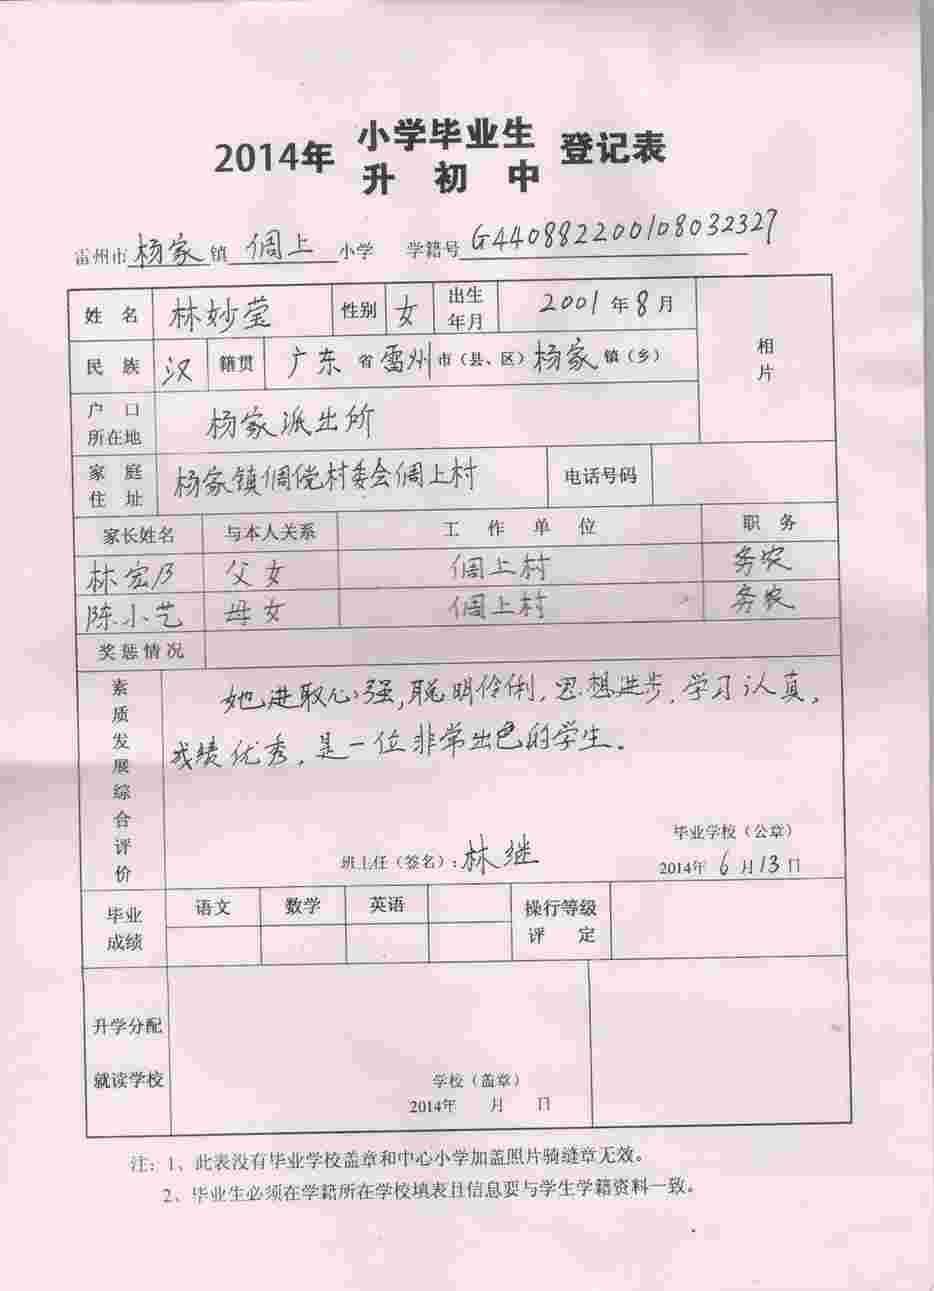 2014年 小学毕业生 登记表
升 初 中
雷州市杨家镇倜上小学 学籍号G440882200108032327
姓 名 林妙莹 性别 女 出生年月 2001年8月 相片
民 族 汉 籍贯 广东省雷州市(县、区)杨家镇(乡)
户口所在地 杨家派出所
家庭住址 杨家镇倜傥村委会倜上村 电话号码
家长姓名 与本人关系 工作单位 职务
林宏乃 父女 倜上村 务农
陈小艺 母女 倜上村 务农
奖惩情况
素质发展综合评价
她进取心强,聪明伶俐,思想进步,学习认真,
成绩优秀,是一位非常出色的学生。
毕业学校(公章)
班主任(签名):林继 2014年6月13日
毕业成绩 语文 数学 英语 操行等级评定
升学分配
就读学校
学校(盖章)
2014年 月 日
注:1、此表没有毕业学校盖章和中心小学加盖照片骑缝章无效。
2、毕业生必须在学籍所在学校填表且信息要与学生学籍资料一致。